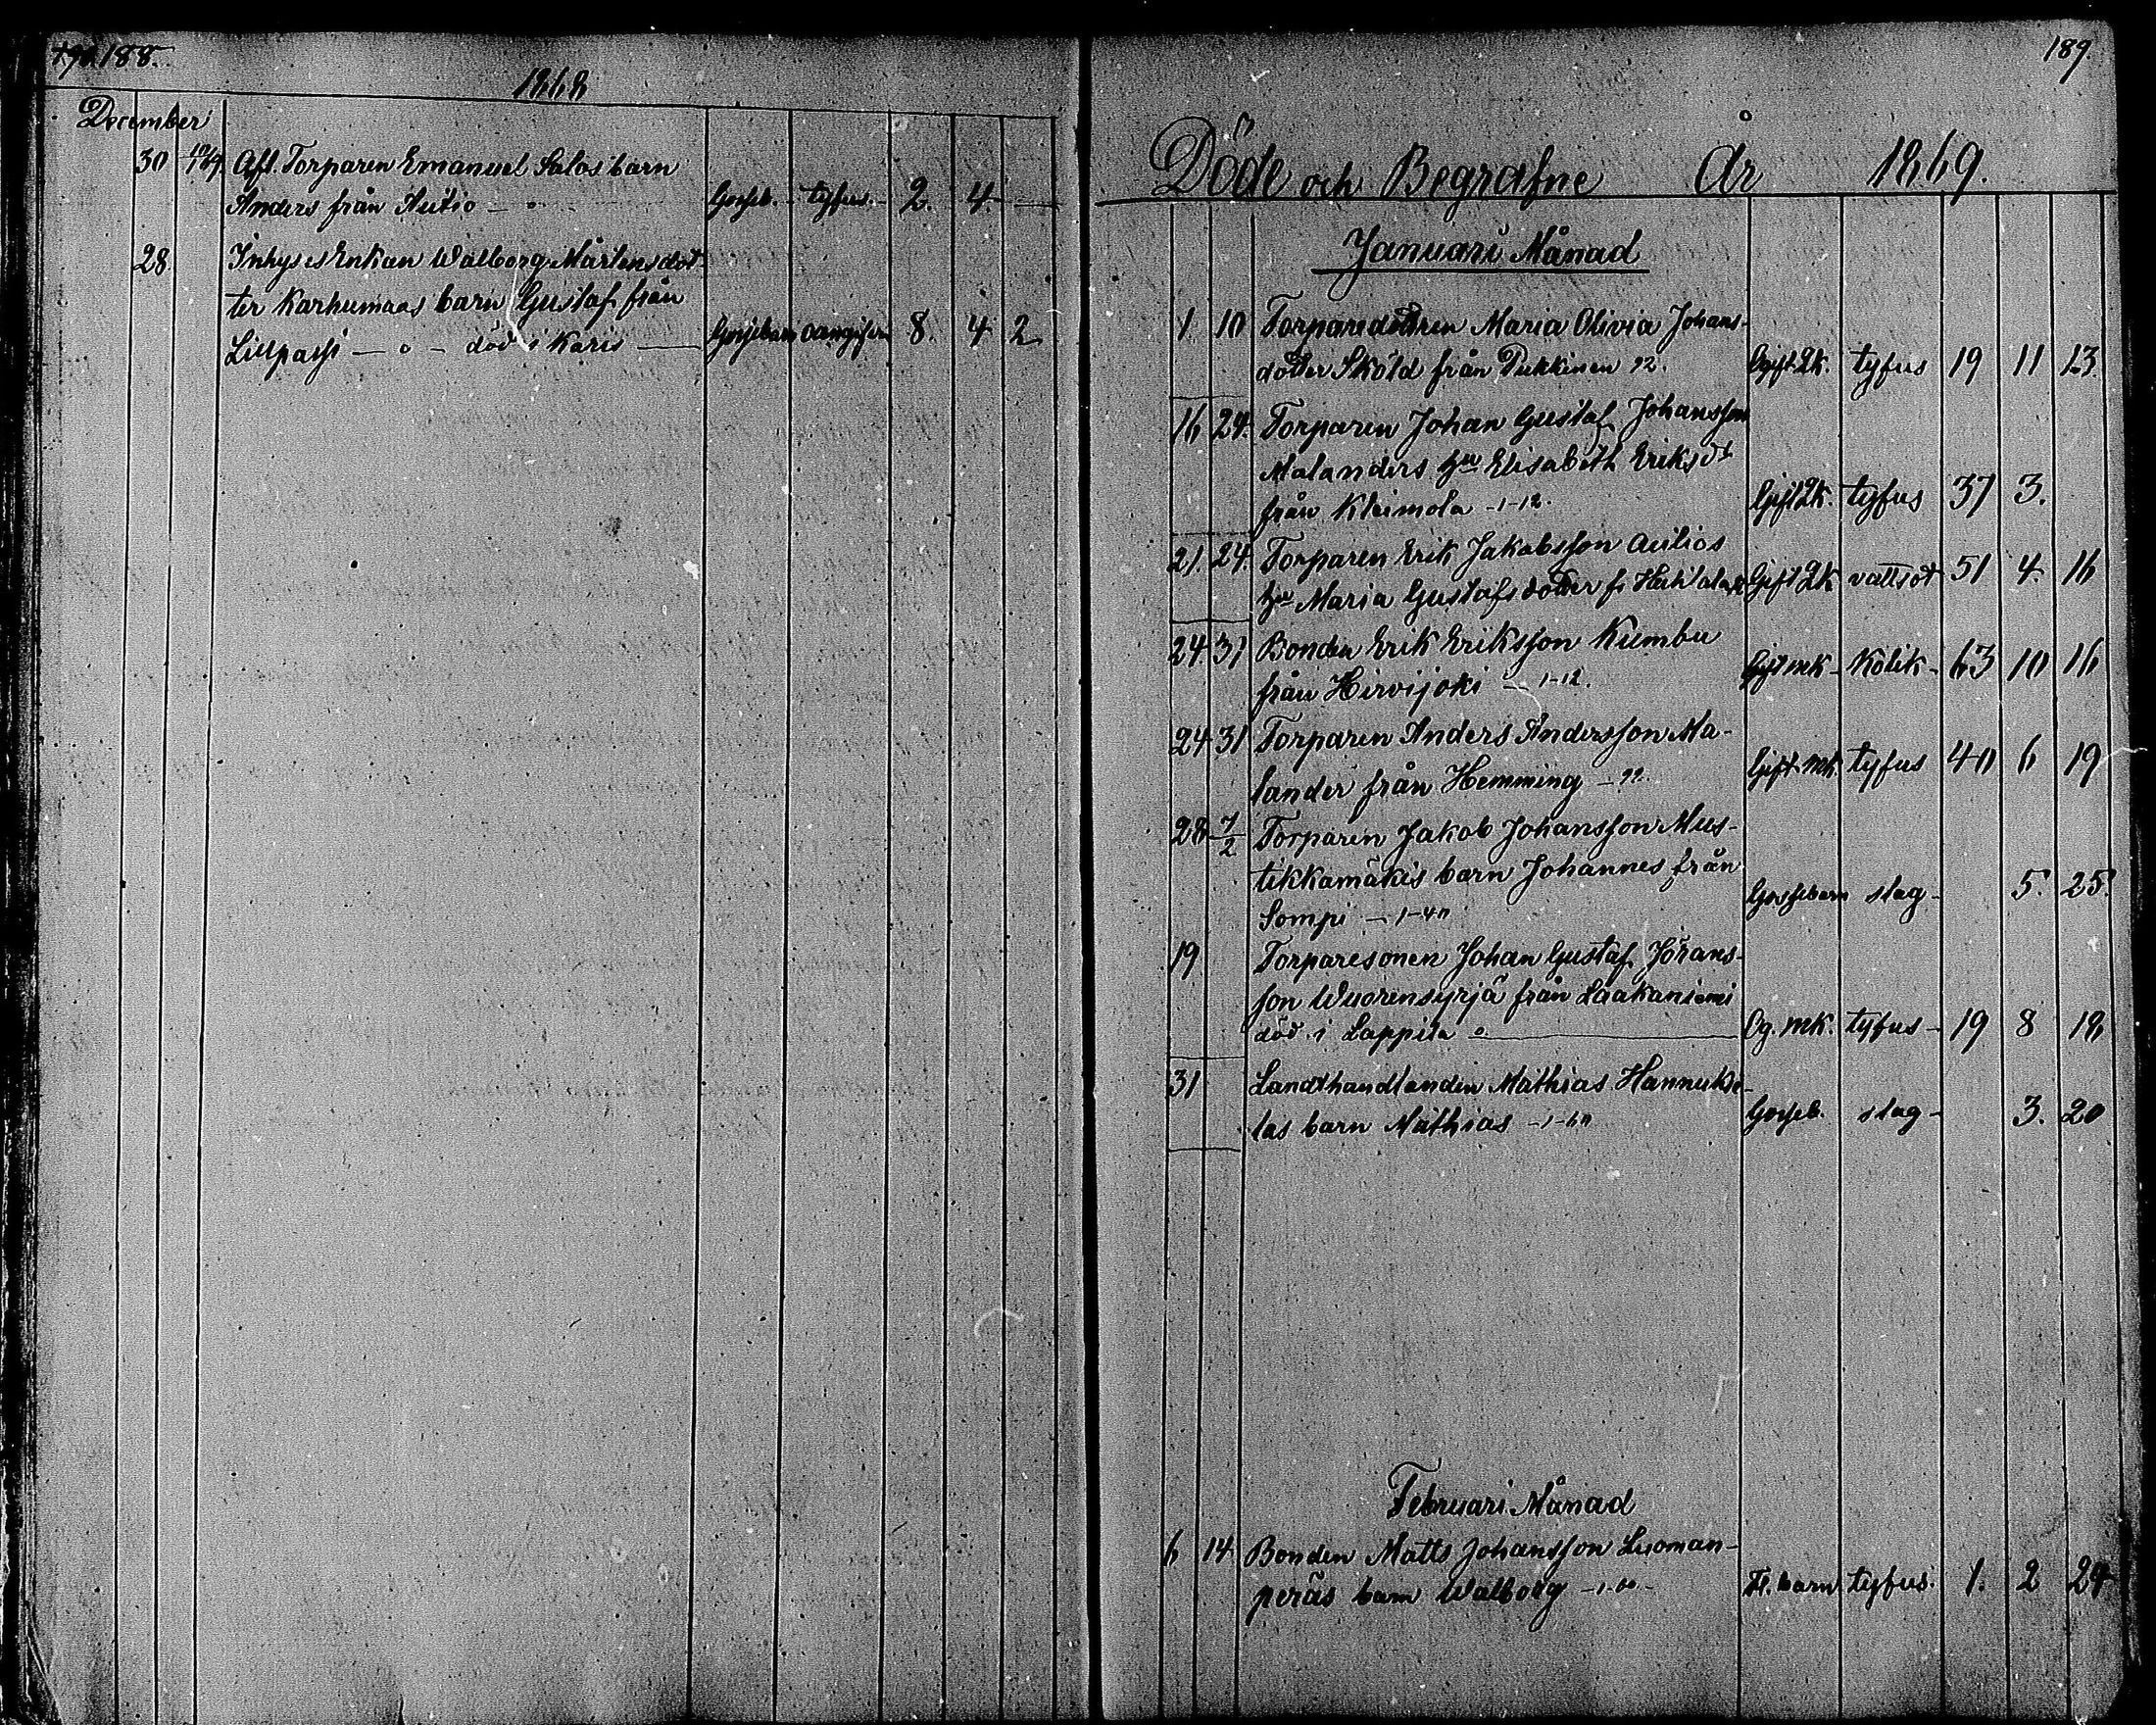 188.
1868
December
30 Afl. Torparen Emanuel Salos barn
Anders från Autio - o - Gosseb. - tyfus. - 2. 4. -
28 Inhyses Enkan Walborg Mårtensdot-
ter Karhumaas barn Gustaf från
Lillpassi - o - död i Karis - Gossebarn oangifven 8. 4 2
189.
Döde och Begrafne År 1869.
Januari Månad
1. 10 Torparedottren Maria Olivia Johans-
dotter Sköld från Pukkinen 92. Ogift. Qk. tyfus 19 11 13.
16 24. Torparen Johan Gustaf Johansson
Malanders hu Elisabeth Eriksdr
från Kleimola -1-12. Gift Qk. tyfus 37 3.
21. 24. Torparen Erik Jakobsson Autios
hu Maria Gustafsdotter fr Gift Qk vattsot 51 4. 16
24 31 Bonden Erik Eriksson Kumbu
från Hirvijoki - 1-12. Gift mk - Kolik - 63 10 16
24 31 Torparen Anders Andersson Ma-
lander från Hemming - 92. Gift. mk. tyfus 40 6 19
28 7/2 Torparen Jakob Johansson Mus-
tikkamäkis barn Johannes från
Sompi - 1-40 Gossebarn slag - 5. 25.
19 Torparesonen Johan Gustaf Jörans-
son Wuorensyrjä från Laakaniemi
död i Lappita o Og. mk. tyfus - 19 8 18
31 Landthandlanden Mathias Hannuks-
las barn Mathias -1-60 Gosseb. slag - 3. 20
Februari Månad
6 14 Bonden Matts Johansson Luoman-
peräs barn Walborg -1-60- Fl. barn tyfus. 1. 2 24